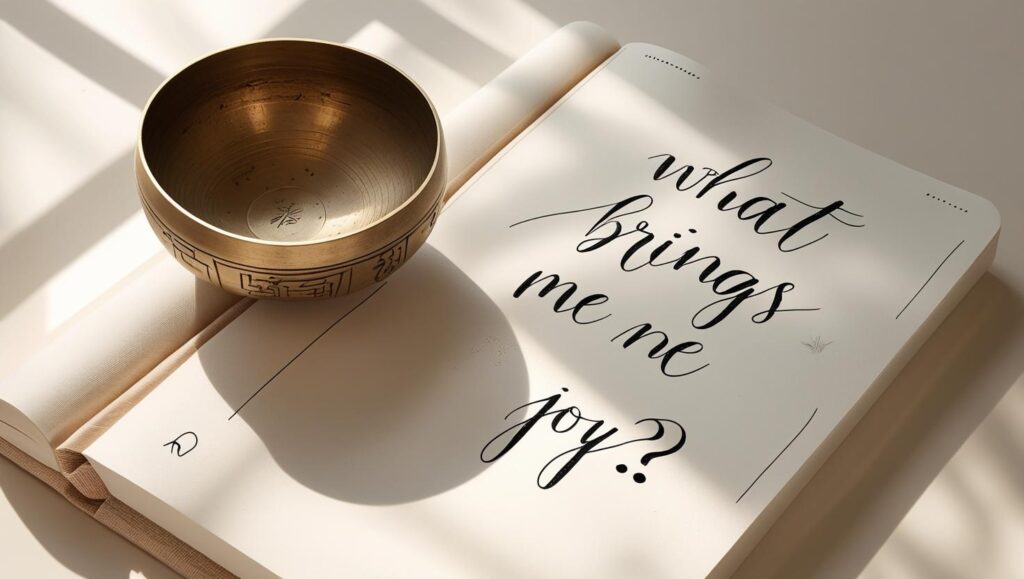 what
brings
me ne
joy??